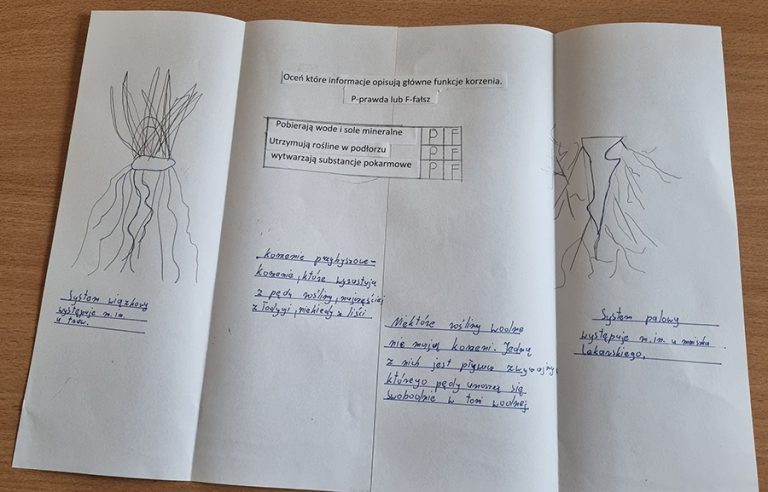 Oceń które informacje opisują główne funkcje korzenia.
P-prawda lub F-fałsz
Pobierają wode i sole mineralne P F
Utrzymują rośline w podłorzu P F
wytwarzają substancje pokarmowe P F
System wiązkowy
występuje m.in.
u traw.
Korzenie przybyszowe -
korzenie, które wyrastają
z pędu rośliny, najczęściej
z łodygi, niekiedy z liści
Niektóre rośliny wodne
nie mają korzeni. Jedną
z nich jest pływacz zwyczajny,
którego pędy unoszą się
swobodnie w toni wodnej
System palowy
występuje m.in. u mniszka
Lekarskiego.